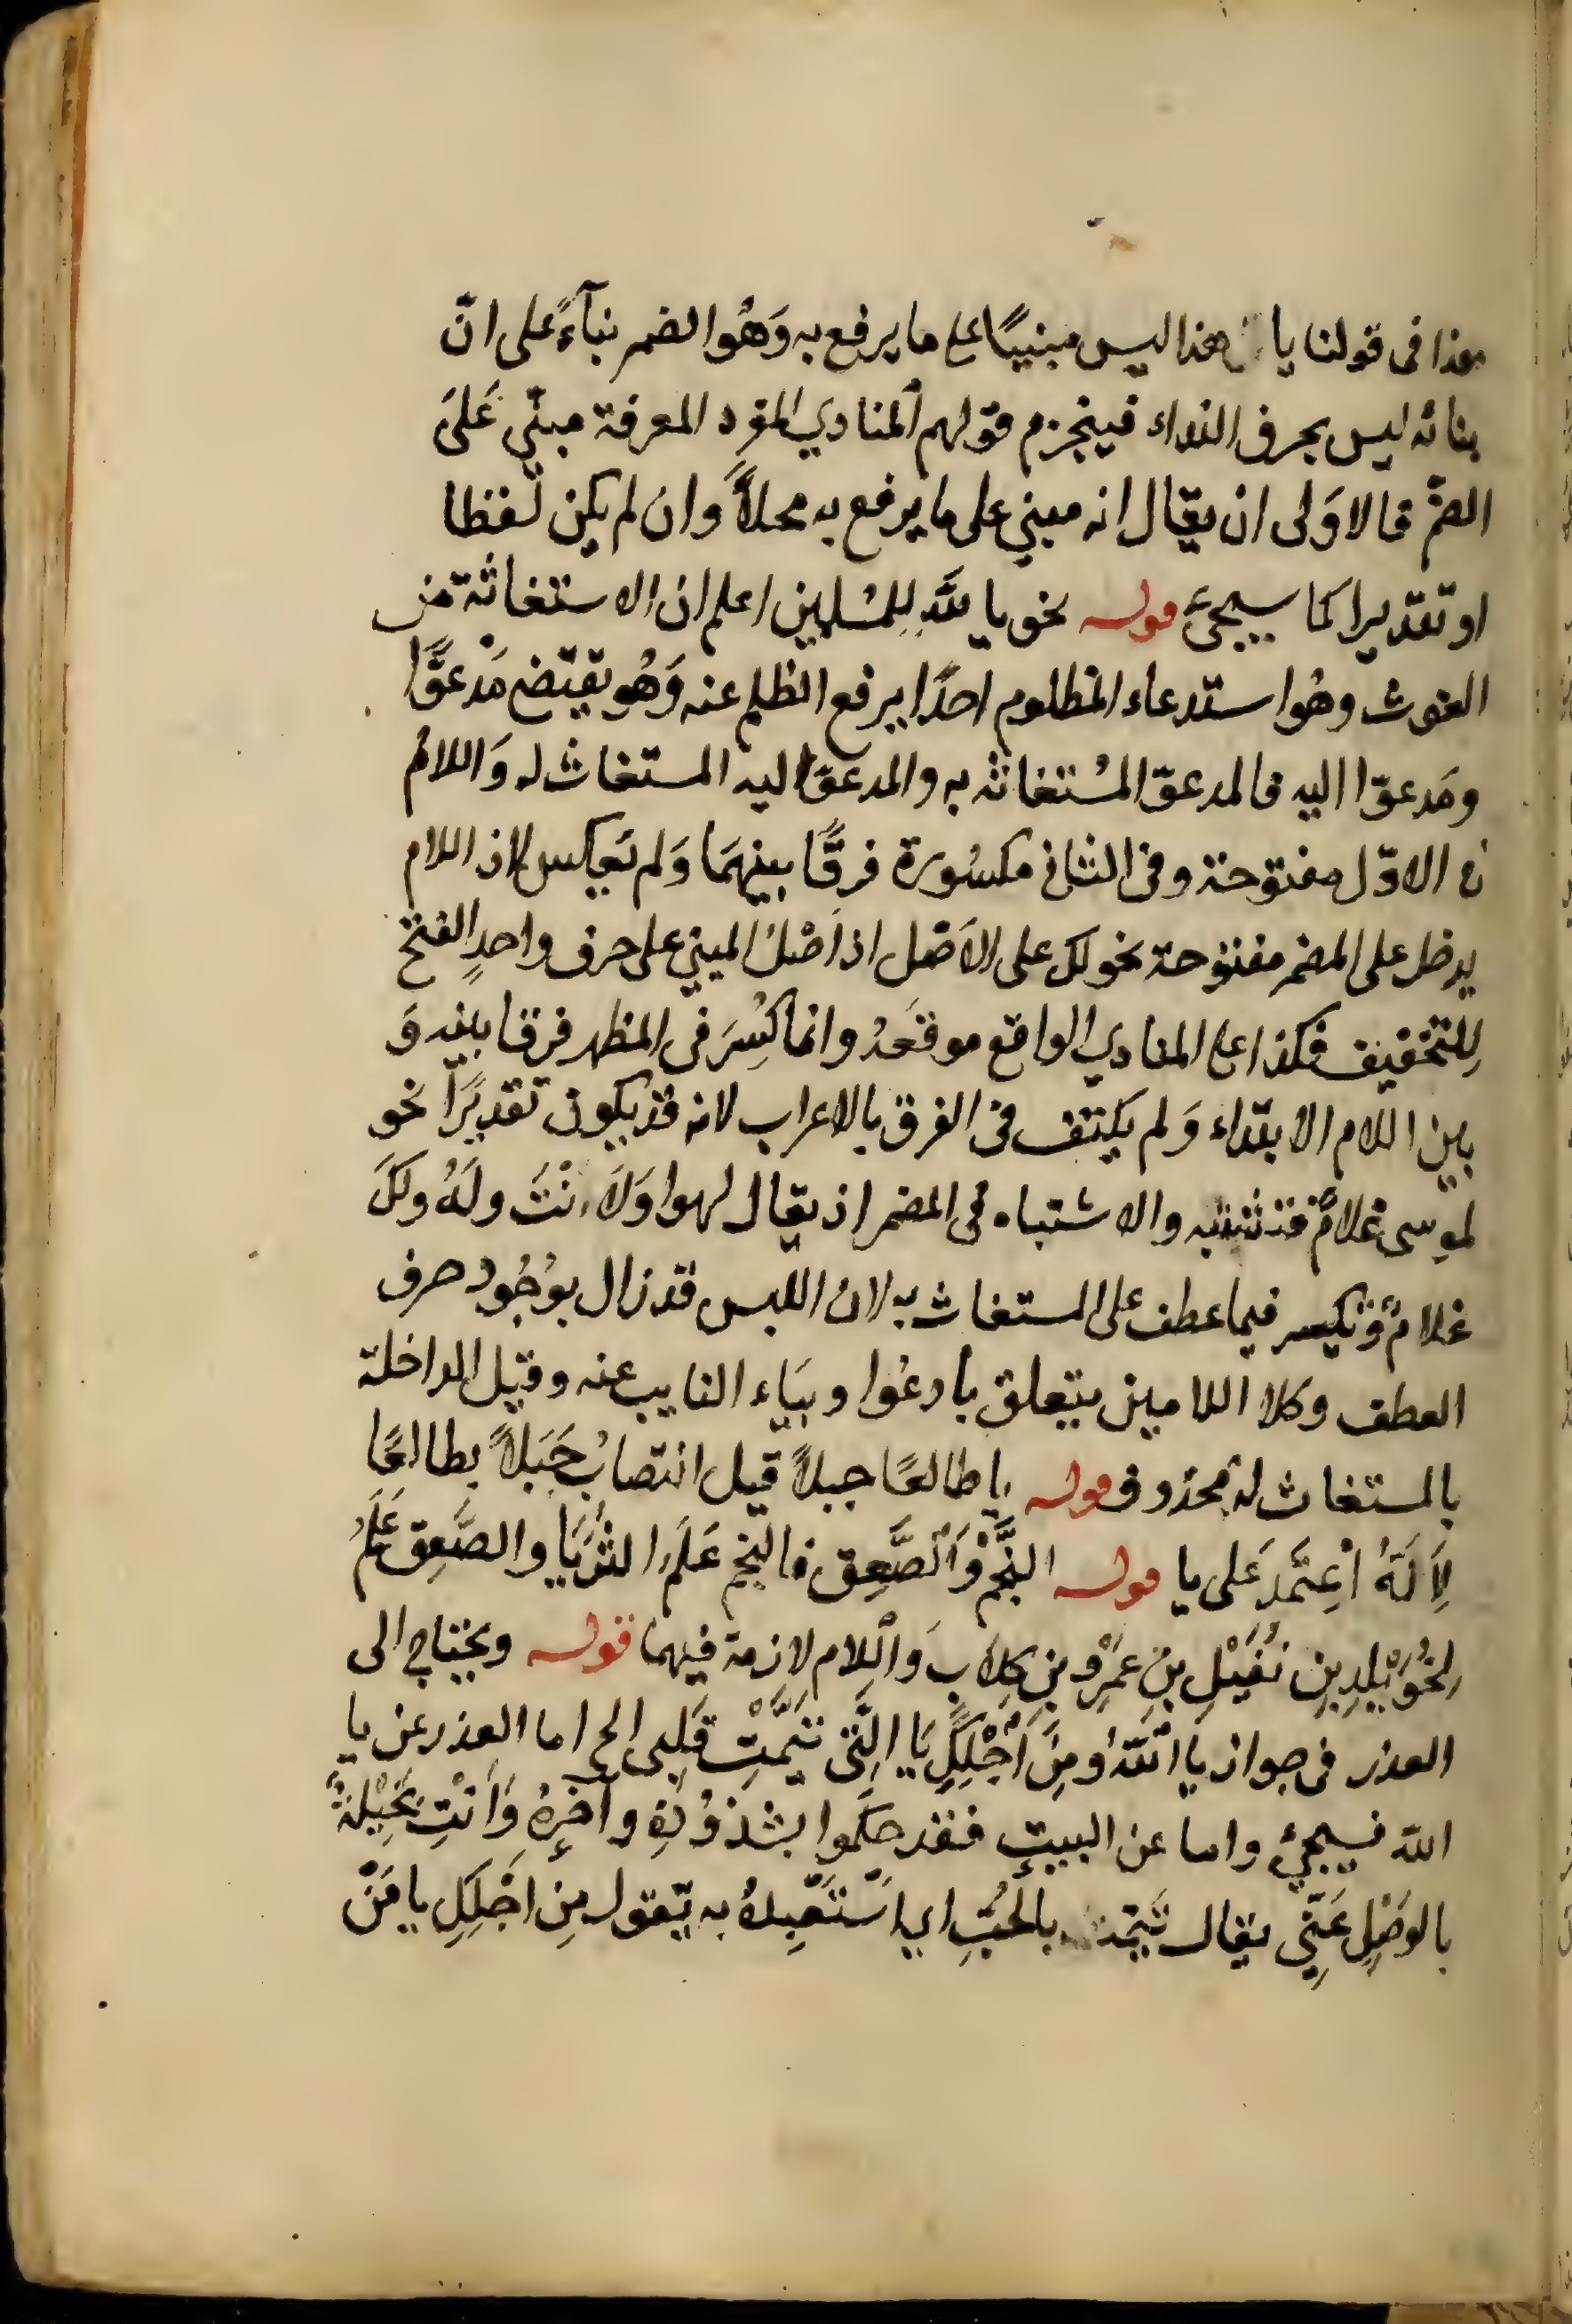 هذا فى قولنا يا هذا ليس مبنيًا على ما يرفع به وَهُو الضم بنآءً على انّ
بنائه ليس بحرف النداء فينجزم قولهم المنادي المفرد المعرفة مبنّي عَلىَ
الضمّ فالاوَلى ان يقال انه مبني على ما يرفع به محلاًّ وان لم يكن لفظا
او تقديرا كما سيجئ قوله نحو يا للهِ لِلمُسلمين اعلم ان الاستغاثة من
الغوث وهُو استدعاء المظلوم احدًا يرفع الظلم عنه وَهُو يقتضى مَدْعوًّا
ومَدعوّا اليه فالمدعوّ المُستغاثه به والمدعوّ اليه المستغاث له وَاللامُ
فى الاوّل مفتوحة وفى الثانى مكسُورة فرقًا بينهمَا وَلم يَعكس لان اللام
يدخل على المضمر مفتوحة نحو لك على الاَصْل اذ اَصْلُ المبني على حرف واحدٍ الفتح
لِلتخفيف فكذا على المنادي الواقع موقعَهُ وانما كُسِرَ فى المظهر فرقا بينه وَ
بين اللام الابتداء وَلم يكتف فى الفرق بالاعراب لانه قد يكون تقديرًا نحو
لموسى غلامٌ فتشتبه والاشتباه فى المضمر اذ يقال لهوا وَلاَنْتَ ولَهُ ولكَ
غلامٌ وَتكسر فيما عطف على المستغاث به لان اللبس قد زال بوُجُود حرف
العطف وكلا اللامين يتعلق بأدعُوا وبيَاء النايب عنه وقيل الداخلة
بالمستغاث له بمحذوف قوله يا طالعًا جبلاً قيل انتصابُ جَبَلاً بطالعًا
لِاَنَهُ اعْتَمَدَ عَلى يا قوله النَّجْم وَالصَّعِق فالنجم عَلَم الثُرَيَّا والصَّعِق عَلَمُ
لِخُوَيْلِدِ بنِ نُفَيْلِ بنِ عَمْرِو بنِ كِلاَبِ وَاللام لازمة فيهما قوله ويحتاج الى
العذر فى جواز يا اَللهُ ومِنَ اَجْلِكِ يَا الَّتى تَيَّمْتِ قَلبى الح اما العذر عن يا
الله فسيجئ واما عن البيتِ فقد حكموا بشذوُذِهِ وآخرُهُ وَاَنْتِ بَخِيْلَةٌ
بالوَصْلِ عَنّى يقال تيّمه بالحُبِّ اي اسْتَعْبدهُ به يقول مِن اَجْلِكِ يا مَنْ